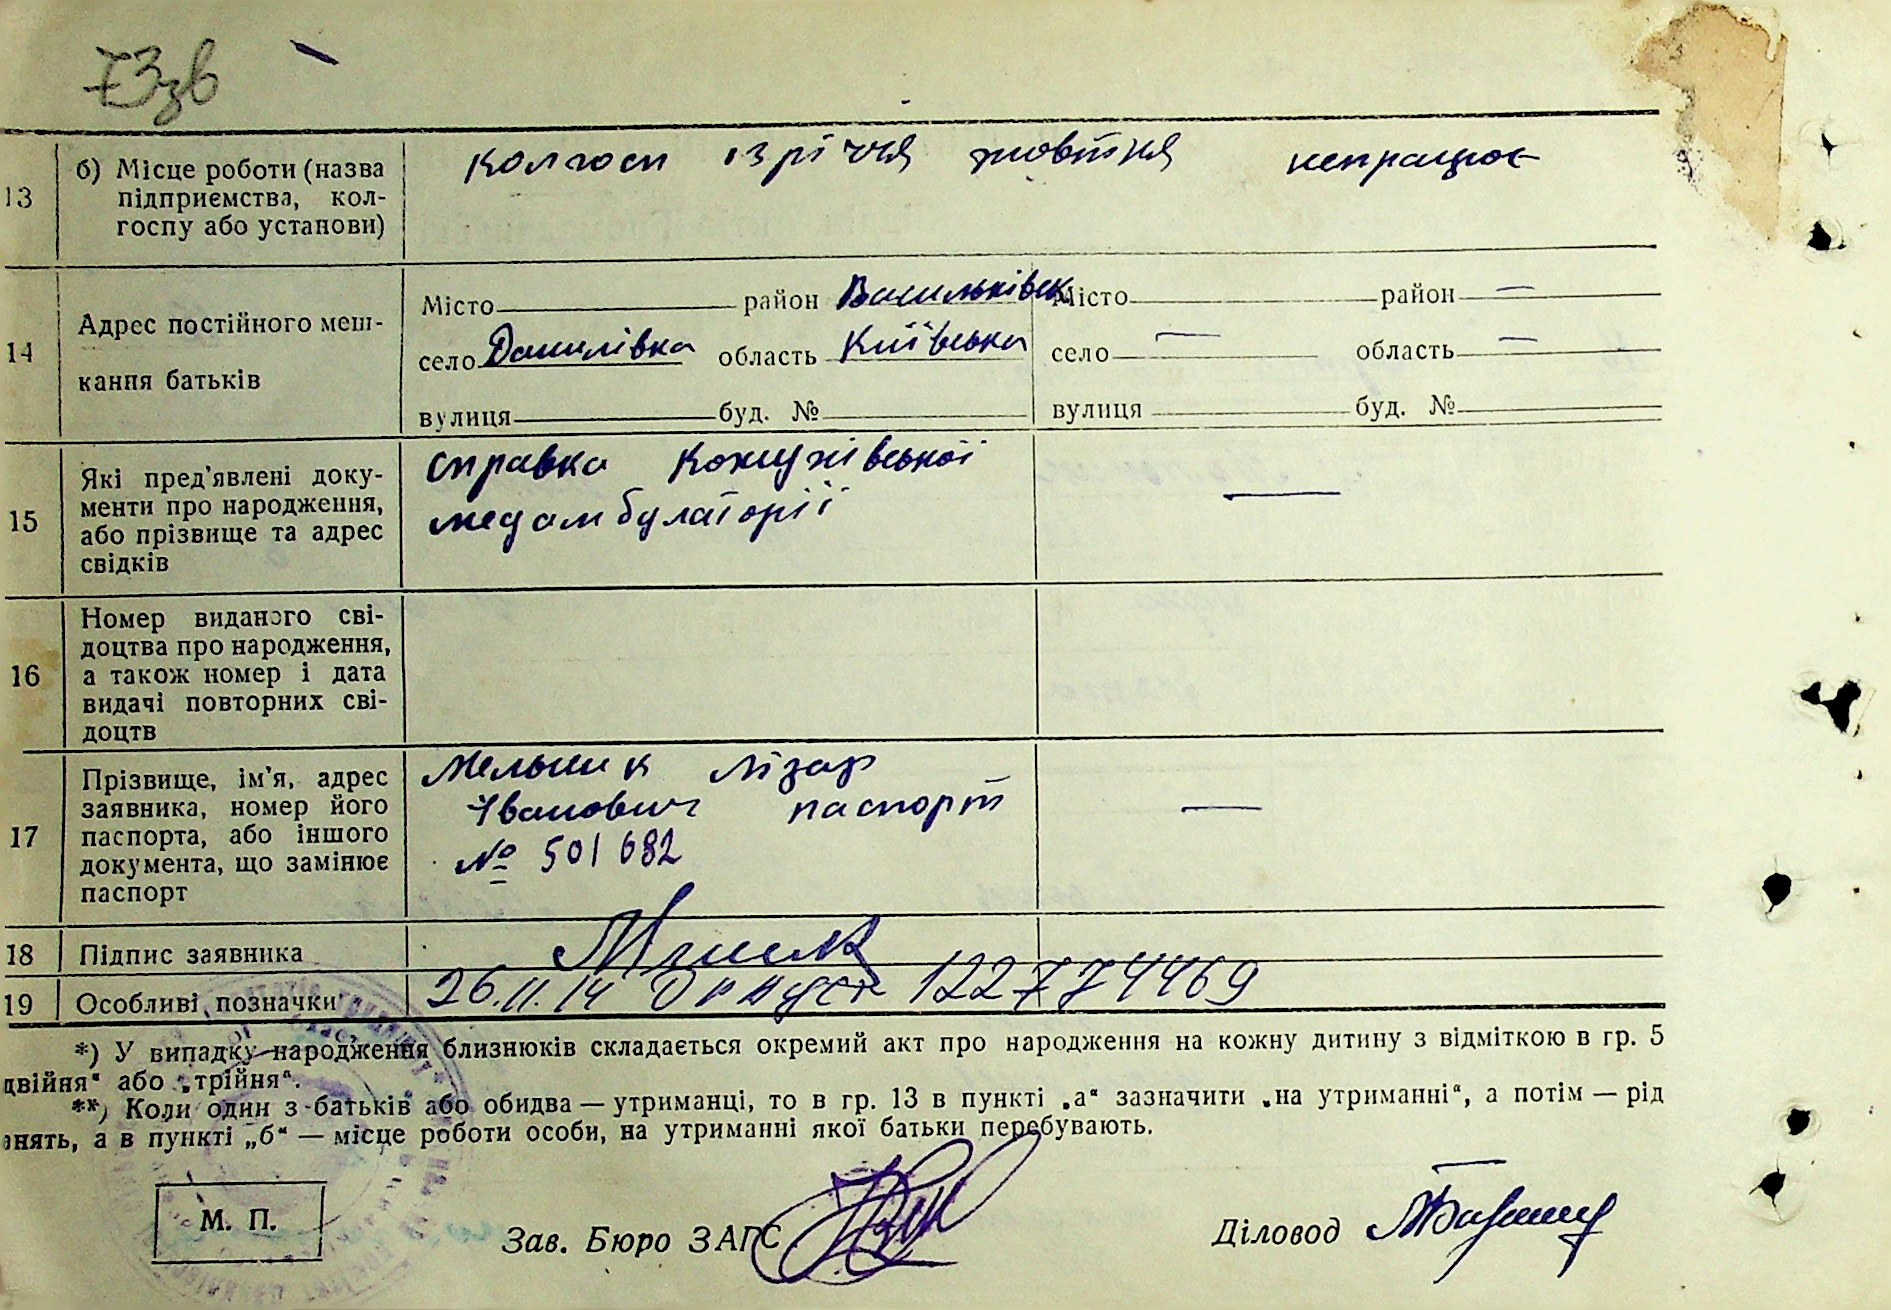 73зв
13 б) Місце роботи (назва підприємства, колгоспу або установи) колгосп 13 річчя жовтня непрацює
14 Адрес постійного мешкання батьків
Місто район Васильківськ Місто район —
село Данилівка область Київська село — область —
вулиця буд. № вулиця буд. №
15 Які пред'явлені документи про народження, або прізвище та адрес свідків
справка Кожухівської
медамбулаторії —
16 Номер виданого свідоцтва про народження, а також номер і дата видачі повторних свідоцтв
17 Прізвище, ім'я, адрес заявника, номер його паспорта, або іншого документа, що замінює паспорт
Мельник Лізар
Іванович паспорт —
№ 501682
18 Підпис заявника
19 Особливі позначки 26.11.14 122774469
*) У випадку народження близнюків складається окремий акт про народження на кожну дитину з відміткою в гр. 5
двійня“ або „трійня“.
**) Коли один з батьків або обидва — утриманці, то в гр. 13 в пункті „а“ зазначити „на утриманні“, а потім — рід
знять, а в пункті „б“ — місце роботи особи, на утриманні якої батьки перебувають.
М. П.
Зав. Бюро ЗАГС Діловод